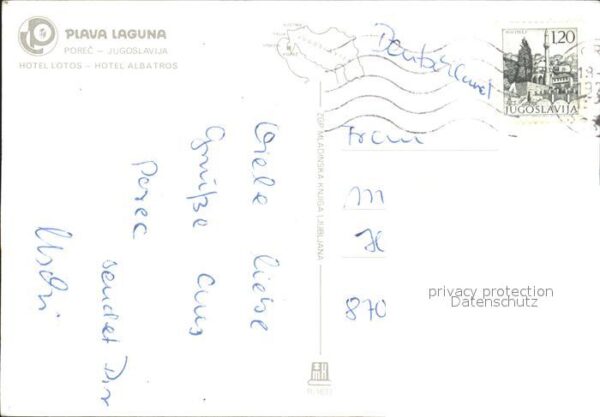 PLAVA LAGUNA
POREČ – JUGOSLAVIJA
HOTEL LOTOS – HOTEL ALBATROS
Viele liebe
Grüße aus
Porec
sendet Dir
Uschi
ZGP MLADINSKA KNJIGA LJUBLJANA
Deutschland
1,20
JUGOSLAVIJA
Frau
870
privacy protection
Datenschutz